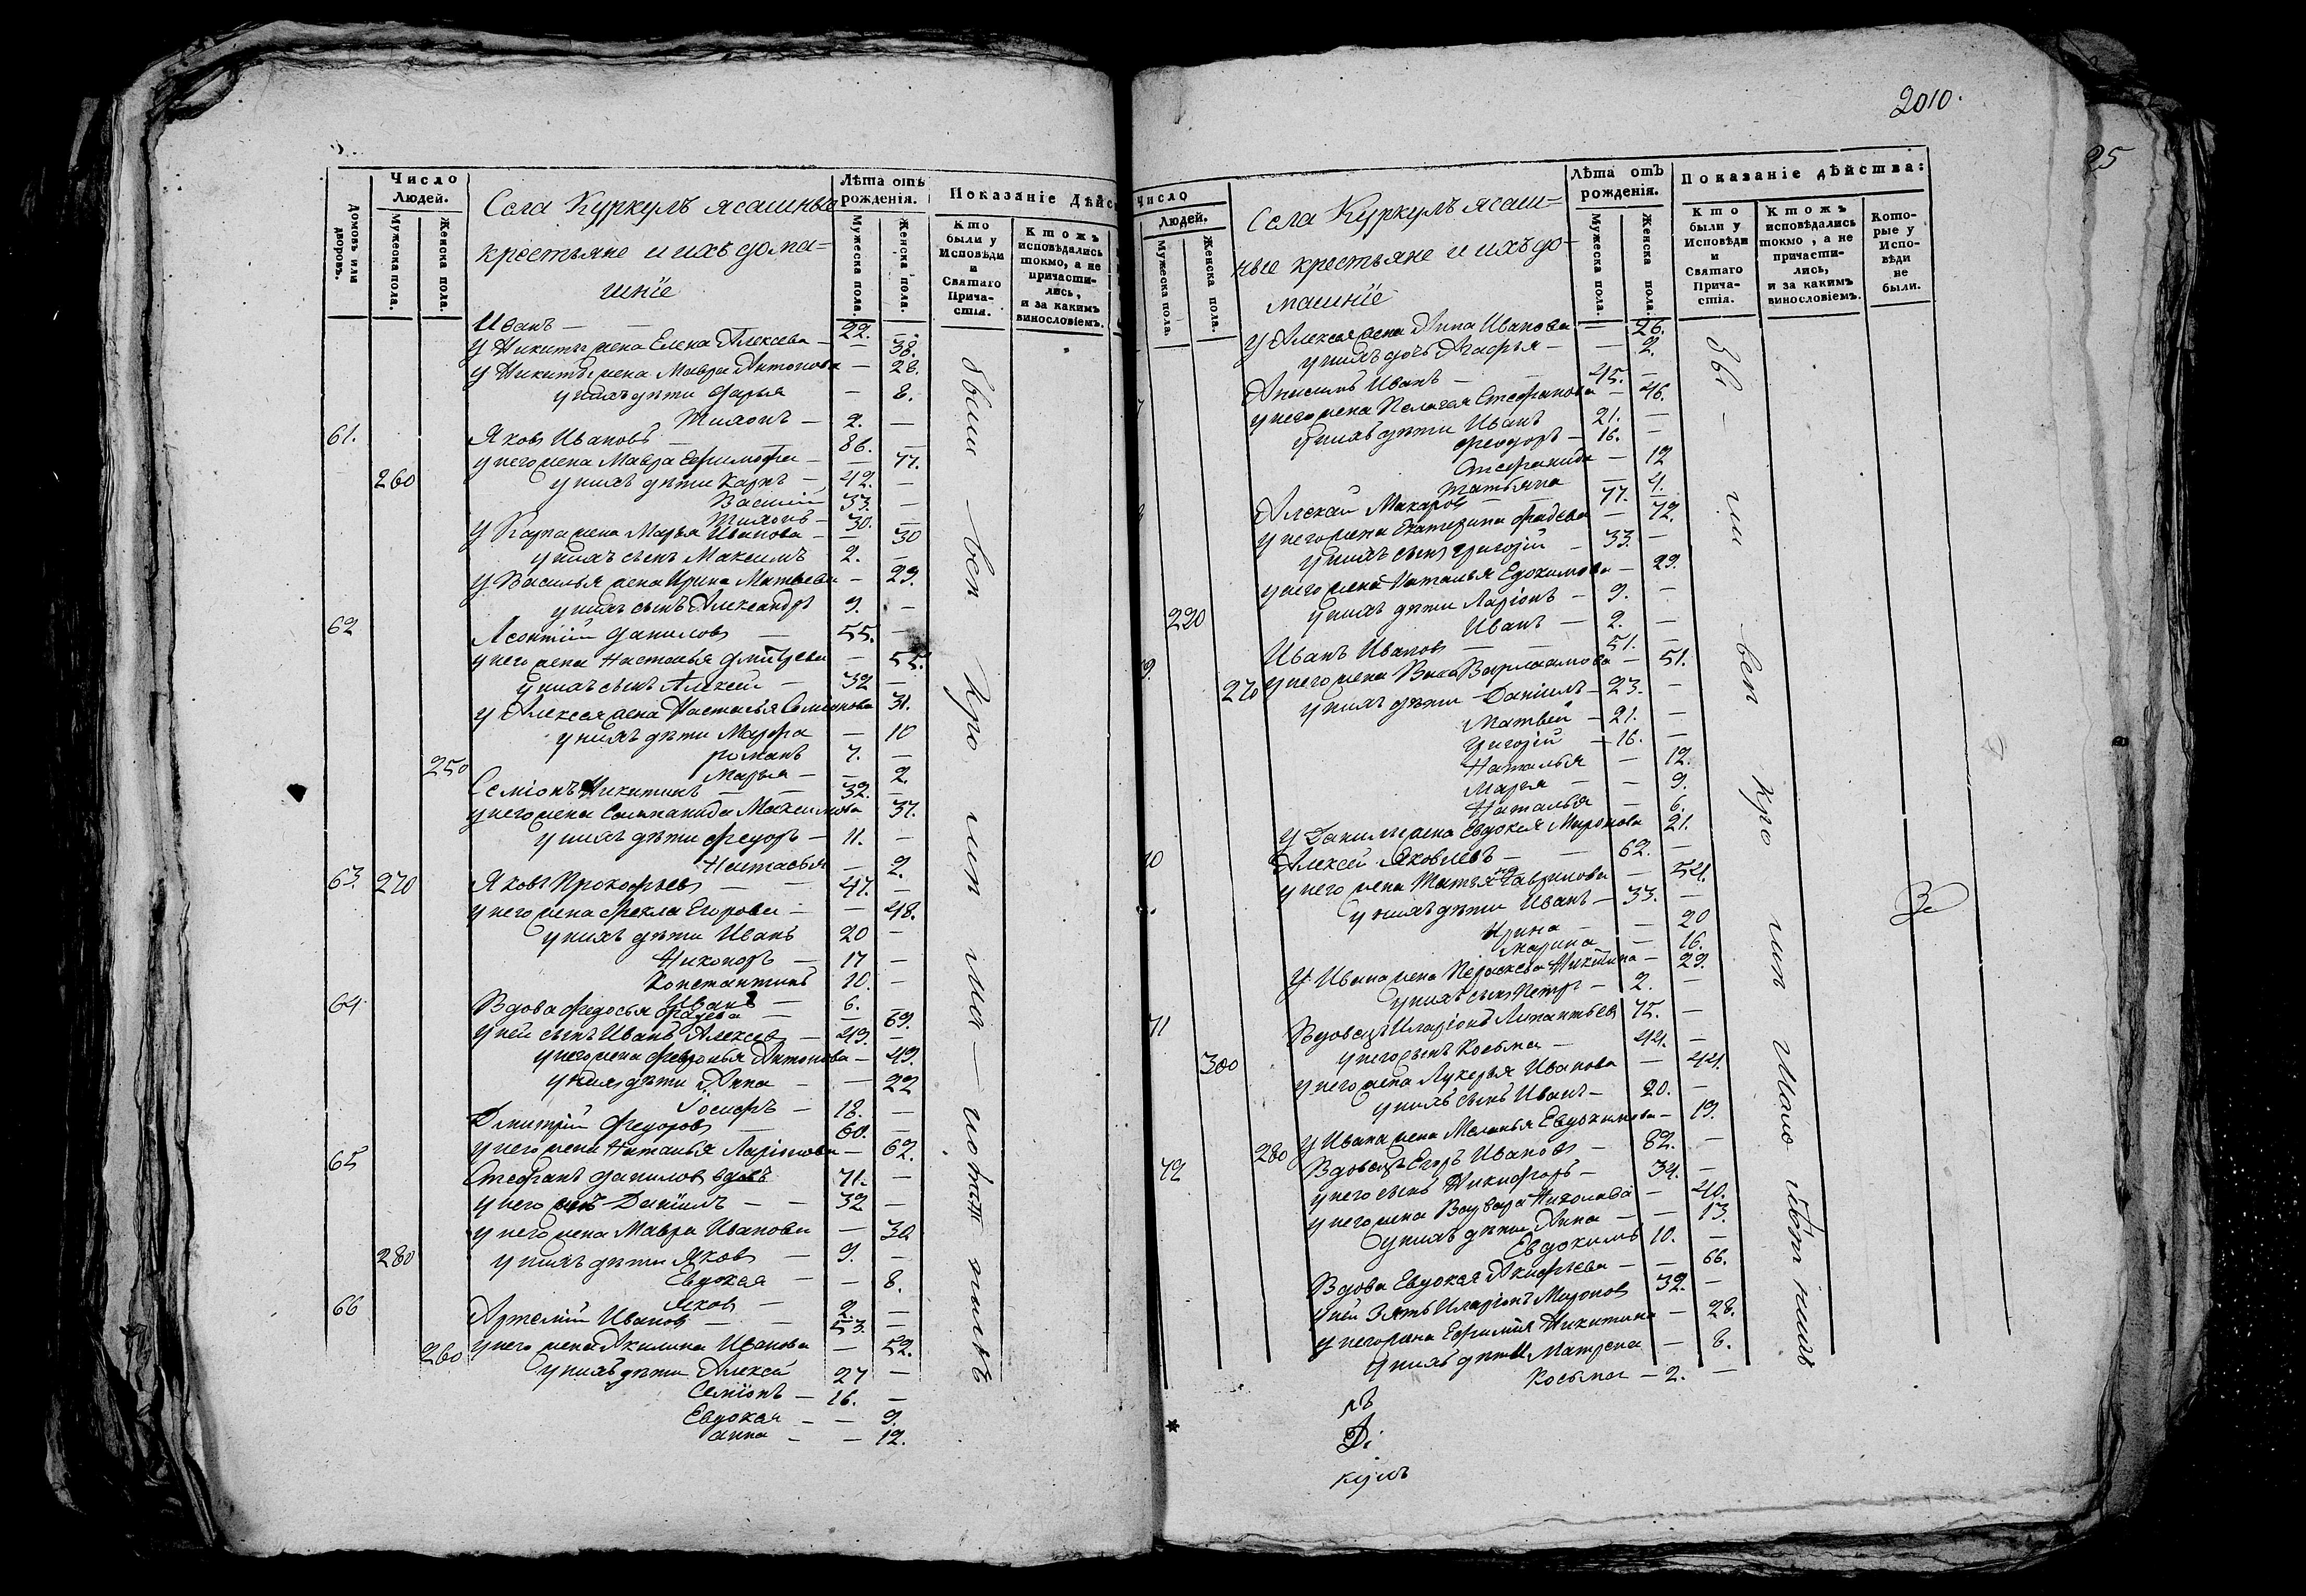 Число Людей.
Домовъ или дворовъ.
Мужеска пола.
Женска пола.
Села Куркулъ ясашныя
крестьяне и ихъ дома=
шніе
Лѣта отъ рожденія.
Мужеска пола.
Женска пола.
Показаніе Дѣйс
Кто были у Исповѣди и Святаго Причастія.
Ктожъ исповѣдались токмо, а не причастились, и за какимъ винословіемъ.
Иванъ — 22. —
У Никиты жена Елена Алексѣва — — 38.
У Никиты жена Мавра Антонова — 28.
у нихъ дѣти Дарья — 8.
Тихонъ — 2. —
61. Яковъ Ивановъ — 86. —
у него жена Мавра Ефимова — — 77.
260 у нихъ дѣти Карпъ — 42. —
Василій 33. —
Тихонъ — 30. —
У Карпа жена Марья Иванова — — 30
у нихъ сынъ Максимъ 2. —
У Василья жена Ирина Матвѣева — 29.
у нихъ сынъ Александръ 9. —
62 Леонтій Даниловъ — 55. —
у него жена Настасья Дмитрева — 55.
у нихъ сынъ Алексѣй — 32 —
У Алексѣя жена Настасья Семіонова 31.
у нихъ дѣти Марфа — 10
романъ 7. —
250 Марья — — 2.
Семіонъ Никитинъ — 32. —
у него жена Соломанида Максимова 37.
у нихъ дѣти Федоръ — 11. —
Настасья — 2.
63. 270 Яковъ Прокофьевъ — 47. —
у него жена Фекла Егорова — — 48.
у нихъ дѣти Иванъ 20 —
Никоноръ — 17 —
Константинъ 10. —
Иванъ — 6. —
64 Вдова Федосья Фадѣева — — 69.
у ней сынъ Иванъ Алексѣевъ — 49. —
у него жена Февронья Антонова — 49.
у нихъ дѣти Анна — — 22
Іосифъ — 18. —
Дмитрій Федоровъ — 60. —
у него жена Наталья Ларіонова — 62.
65 Стефанъ Даниловъ вдовъ 71. —
у него сынъ Даніилъ — — 32 —
у него жена Мавра Иванова — 30
280 у нихъ дѣти Яковъ — 9. —
Евдокея — — 8.
Яковъ — 2. —
66 Артемій Ивановъ — — 53. —
260 у него жена Акилина Иванова — 52.
у нихъ дѣти Алексѣй 27 —
Семіонъ — 16. —
Евдокея — — 9.
анна — — 12.
были
2010.
25
Число Людей.
Мужеска пола.
Женска пола.
Села Куркулъ ясаш=
ные крестьяне и ихъ до=
машніе
Лѣта отъ рожденія.
Мужеска пола.
Женска пола.
Показаніе дѣйства:
Кто были у Исповѣди и Святаго Причастія.
Ктожъ исповѣдались токмо, а не причастились, и за какимъ винословіемъ.
Которые у Исповѣди не были.
У Алексѣя жена Анна Иванова — 26.
у нихъ дочь Агафья — — 2.
Анисимъ Иванъ — 45. —
у него жена Пелагея Стефанова — 46.
у нихъ дѣти Иванъ 21. —
Феодоръ — 16. —
Стефанида — 12
Татьяна — 4.
Алексѣй Макаровъ 77. —
у него жена Екатерина Фадѣева — 72.
у нихъ сынъ григорій — 33. —
у него жена Наталья Едокимова — 29.
220 у нихъ дѣти Ларіонъ — 9. —
Иванъ — 2. —
9. Иванъ Ивановъ — 51. —
270 у него жена Васса Варлаамова — 51.
у нихъ дѣти — Даніилъ — 23. —
Матвей — 21. —
Григорій — 16. —
Наталья — 12.
Марья — — 9.
Наталья — 6.
У Данилы жена Евдокея Миронова 21.
10 Алексѣй Яковлевъ — — 62. —
у него жена Татьяна Гаврилова — 54.
у нихъ дѣти Иванъ — 33. —
Ирина — — 20
Марина — 16.
У Ивана жена Параскева Никитина — 29.
у нихъ сынъ Петръ — 2. —
71 Вдовецъ Иларіонъ 75. —
300 у него сынъ Косьма — 44. —
у него жена Лукерья Иванова — 44.
у нихъ сынъ Иванъ — 20. —
У Ивана жена Меланья Евдокимова — 19.
72 280 Вдовецъ Егоръ Ивановъ — 82. —
у него сынъ Никифоръ — 34. —
у него жена Варвара Николаева — 40.
у нихъ дѣти Анна — — 13.
Евдокимъ 10. —
Вдова Евдокея Акифьева — — 66.
у ней зять Иларіонъ Мироновъ 32. —
у него жена Ефимія Никитина — 28.
у нихъ дѣти Матрена — 8.
Косьма — 2. —